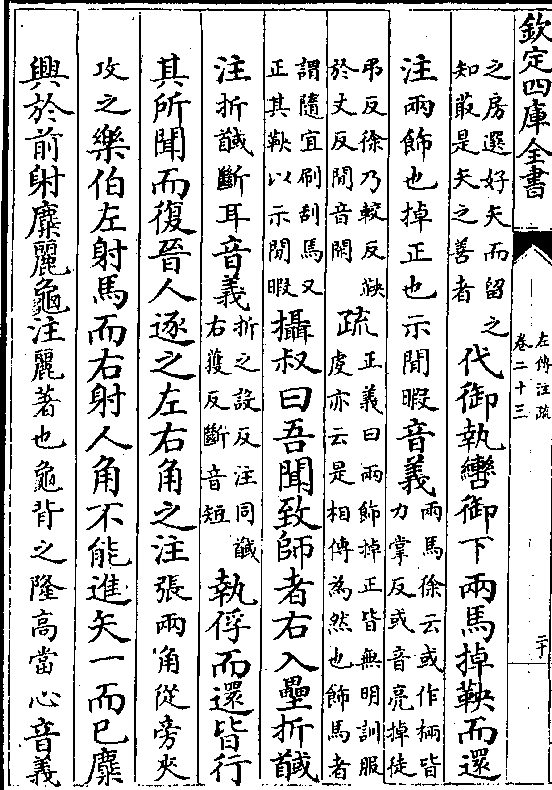 欽定四庫全書
左傳注疏
卷二十三
二十
之房選好矢而留之
知菆是矢之善者
代御執轡御下兩馬掉鞅而還
注兩飾也掉正也示閒暇音義
兩馬徐云或作柄皆
力掌反或音亮掉徒
弔反徐乃較反鞅
於丈反閒音閑
疏
正義曰兩飾掉正皆無明訓服
虔亦云是相傳為然也飾馬者
謂隨宜刷刮馬又
正其鞅以示閒暇
攝叔曰吾聞致師者右入壘折馘
注折馘斷耳音義
折之設反注同馘
右獲反斷音短
執俘而還皆行
其所聞而復晉人逐之左右角之注張兩角從旁夾
攻之樂伯左射馬而右射人角不能進矢一而已麋
興於前射麋麗龜注麗著也龜背之隆高當心音義